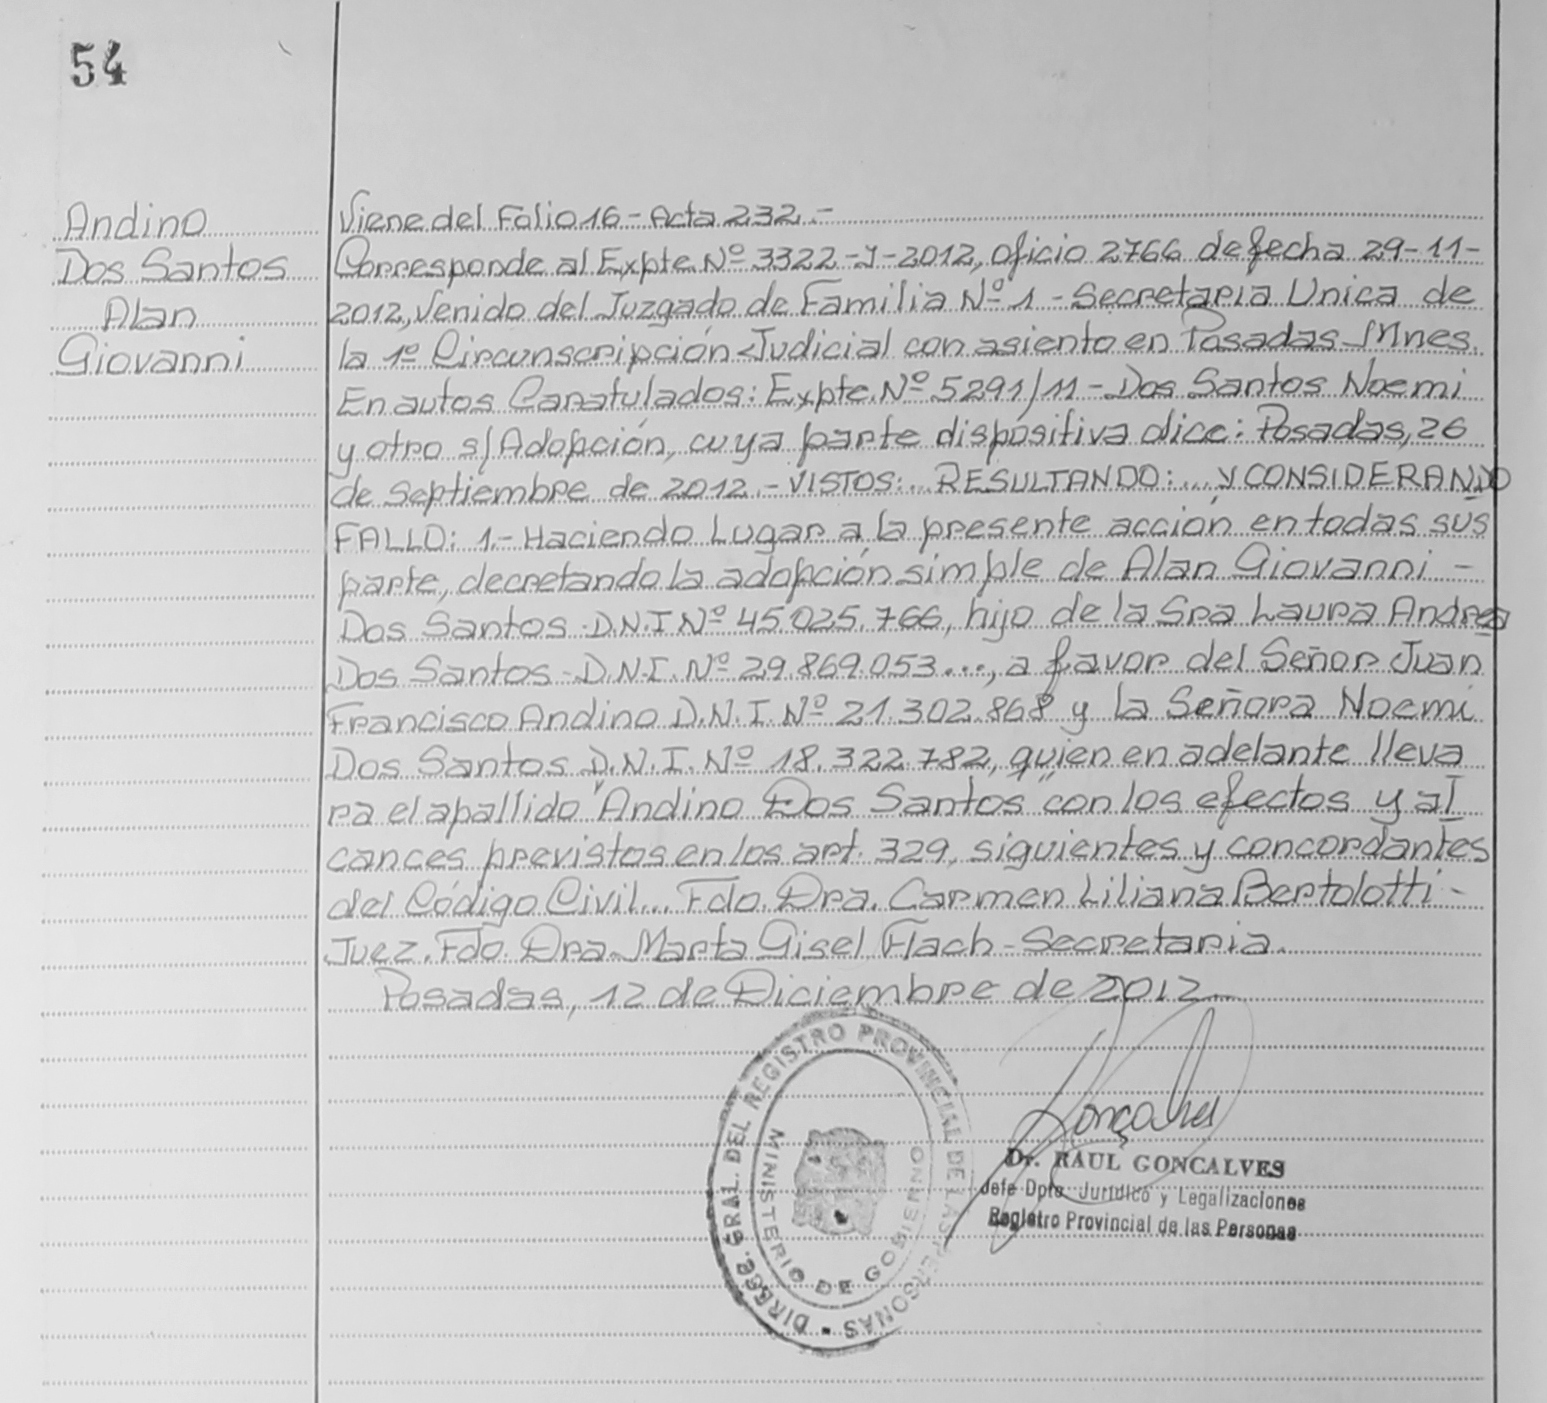 54
Andino
Dos Santos
Alan
Giovanni
Viene del Folio 16 - Acta 232.-
Corresponde al Expte Nº 3322-J-2012, Oficio 2766 de fecha 29-11-
2012, Venido del Juzgado de Familia Nº 1 - Secretaria Unica de
la 1º Circunscripción Judicial con asiento en Posadas Mnes.
En autos Caratulados: Expte. Nº 5291/11 - Dos Santos Noemi
y otro s/Adopción, cuya parte dispositiva dice: Posadas, 26
de Septiembre de 2012.- VISTOS:... RESULTANDO:... Y CONSIDERANDO
FALLO: 1.- Haciendo Lugar a la presente acción en todas sus
parte, decretando la adopción simple de Alan Giovanni -
Dos Santos - D.N.I Nº 45.025.766, hijo de la Sra Laura Andrea
Dos Santos - D.N.I. Nº 29.869.053..., a favor del Señor Juan
Francisco Andino D.N.I. Nº 21.302.868 y la Señora Noemi
Dos Santos D.N.I. Nº 18.322.782, quien en adelante lleva
ra el apallido "Andino Dos Santos" con los efectos y al
cances previstos en los art. 329, siguientes y concordantes
del Código Civil... Fdo. Dra. Carmen Liliana Bertolotti -
Juez. Fdo. Dra Marta Gisel Flach - Secretaria.
Posadas, 12 de Diciembre de 2012.-
DIRECC. GRAL. DEL REGISTRO PROVINCIAL DE LAS PERSONAS -
MINISTERIO DE GOBIERNO
Gonçalves
Dr. RAUL GONCALVES
Jefe Dpto. Jurídico y Legalizaciones
Registro Provincial de las Personas